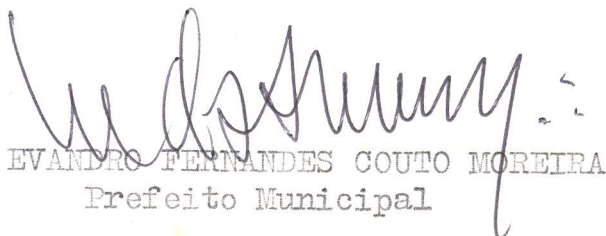 EVANDRO FERNANDES COUTO MOREIRA
Prefeito Municipal